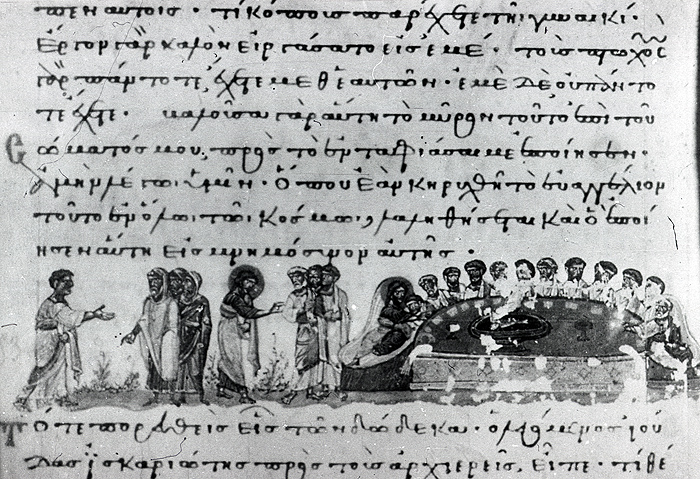 πεν αὐτοῖς· τί κόπους παρέχετε τῇ γυναικί·
ἔργον γὰρ καλὸν εἰργάσατο εἰς ἐμέ· τοὺς πτωχοὺς
γὰρ πάντοτε ἔχετε μεθ' ἑαυτῶν· ἐμὲ δὲ οὐ πάντο
τε ἔχετε· βαλοῦσα γὰρ αὕτη τὸ μύρον τοῦτο ἐπὶ τοῦ
σώματός μου, πρὸς τὸ ἐνταφιάσαι με ἐποίησεν·
ἀμὴν λέγω ὑμῖν· ὅπου ἐὰν κηρυχθῇ τὸ εὐαγγέλιον
τοῦτο ἐν ὅλῳ τῷ κόσμῳ, λαληθήσεται καὶ ὃ ἐποί
ησεν αὕτη εἰς μνημόσυνον αὐτῆς·
Τότε πορευθεὶς εἷς τῶν δώδεκα· ὁ λεγόμενος ἰού
δας ἰσκαριώτης πρὸς τοὺς ἀρχιερεῖς, εἶπε· τί θέ